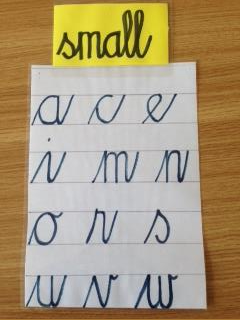 small
a c e
i m n
o r s
u v w